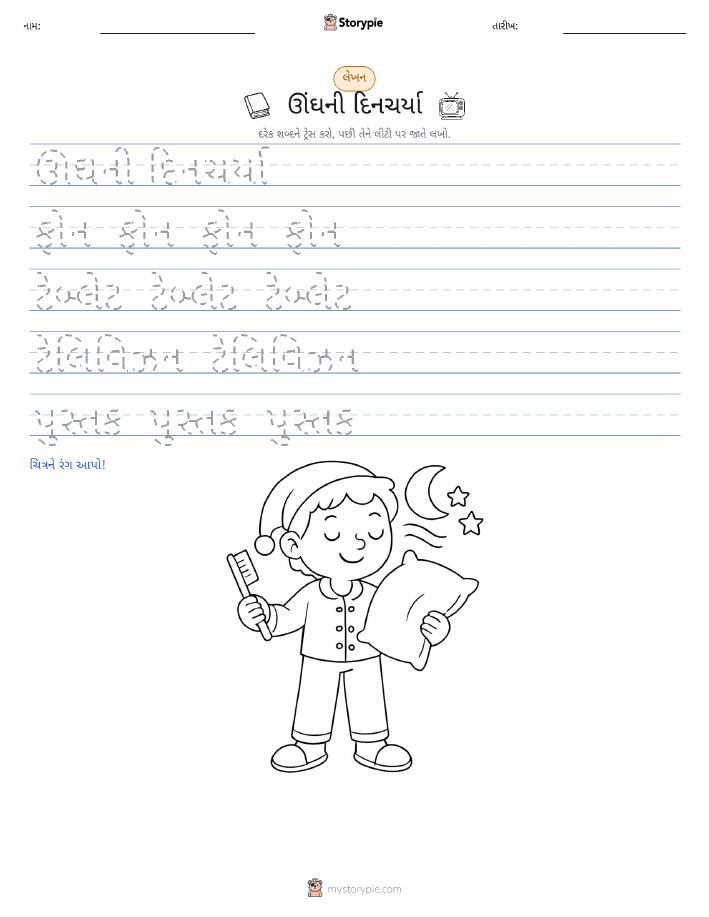 નામ:
Storypie
તારીખ:
લેખન
ઊંઘની દિનચર્યા
દરેક શબ્દને ટ્રેસ કરો, પછી તેને લીટી પર જાતે લખો.
ઊંઘની દિનચર્યા
ફોન ફોન ફોન ફોન
ટેબ્લેટ ટેબ્લેટ ટેબ્લેટ
ટેલિવિઝન ટેલિવિઝન
પુસ્તક પુસ્તક પુસ્તક
ચિત્રને રંગ આપો!
mystorypie.com